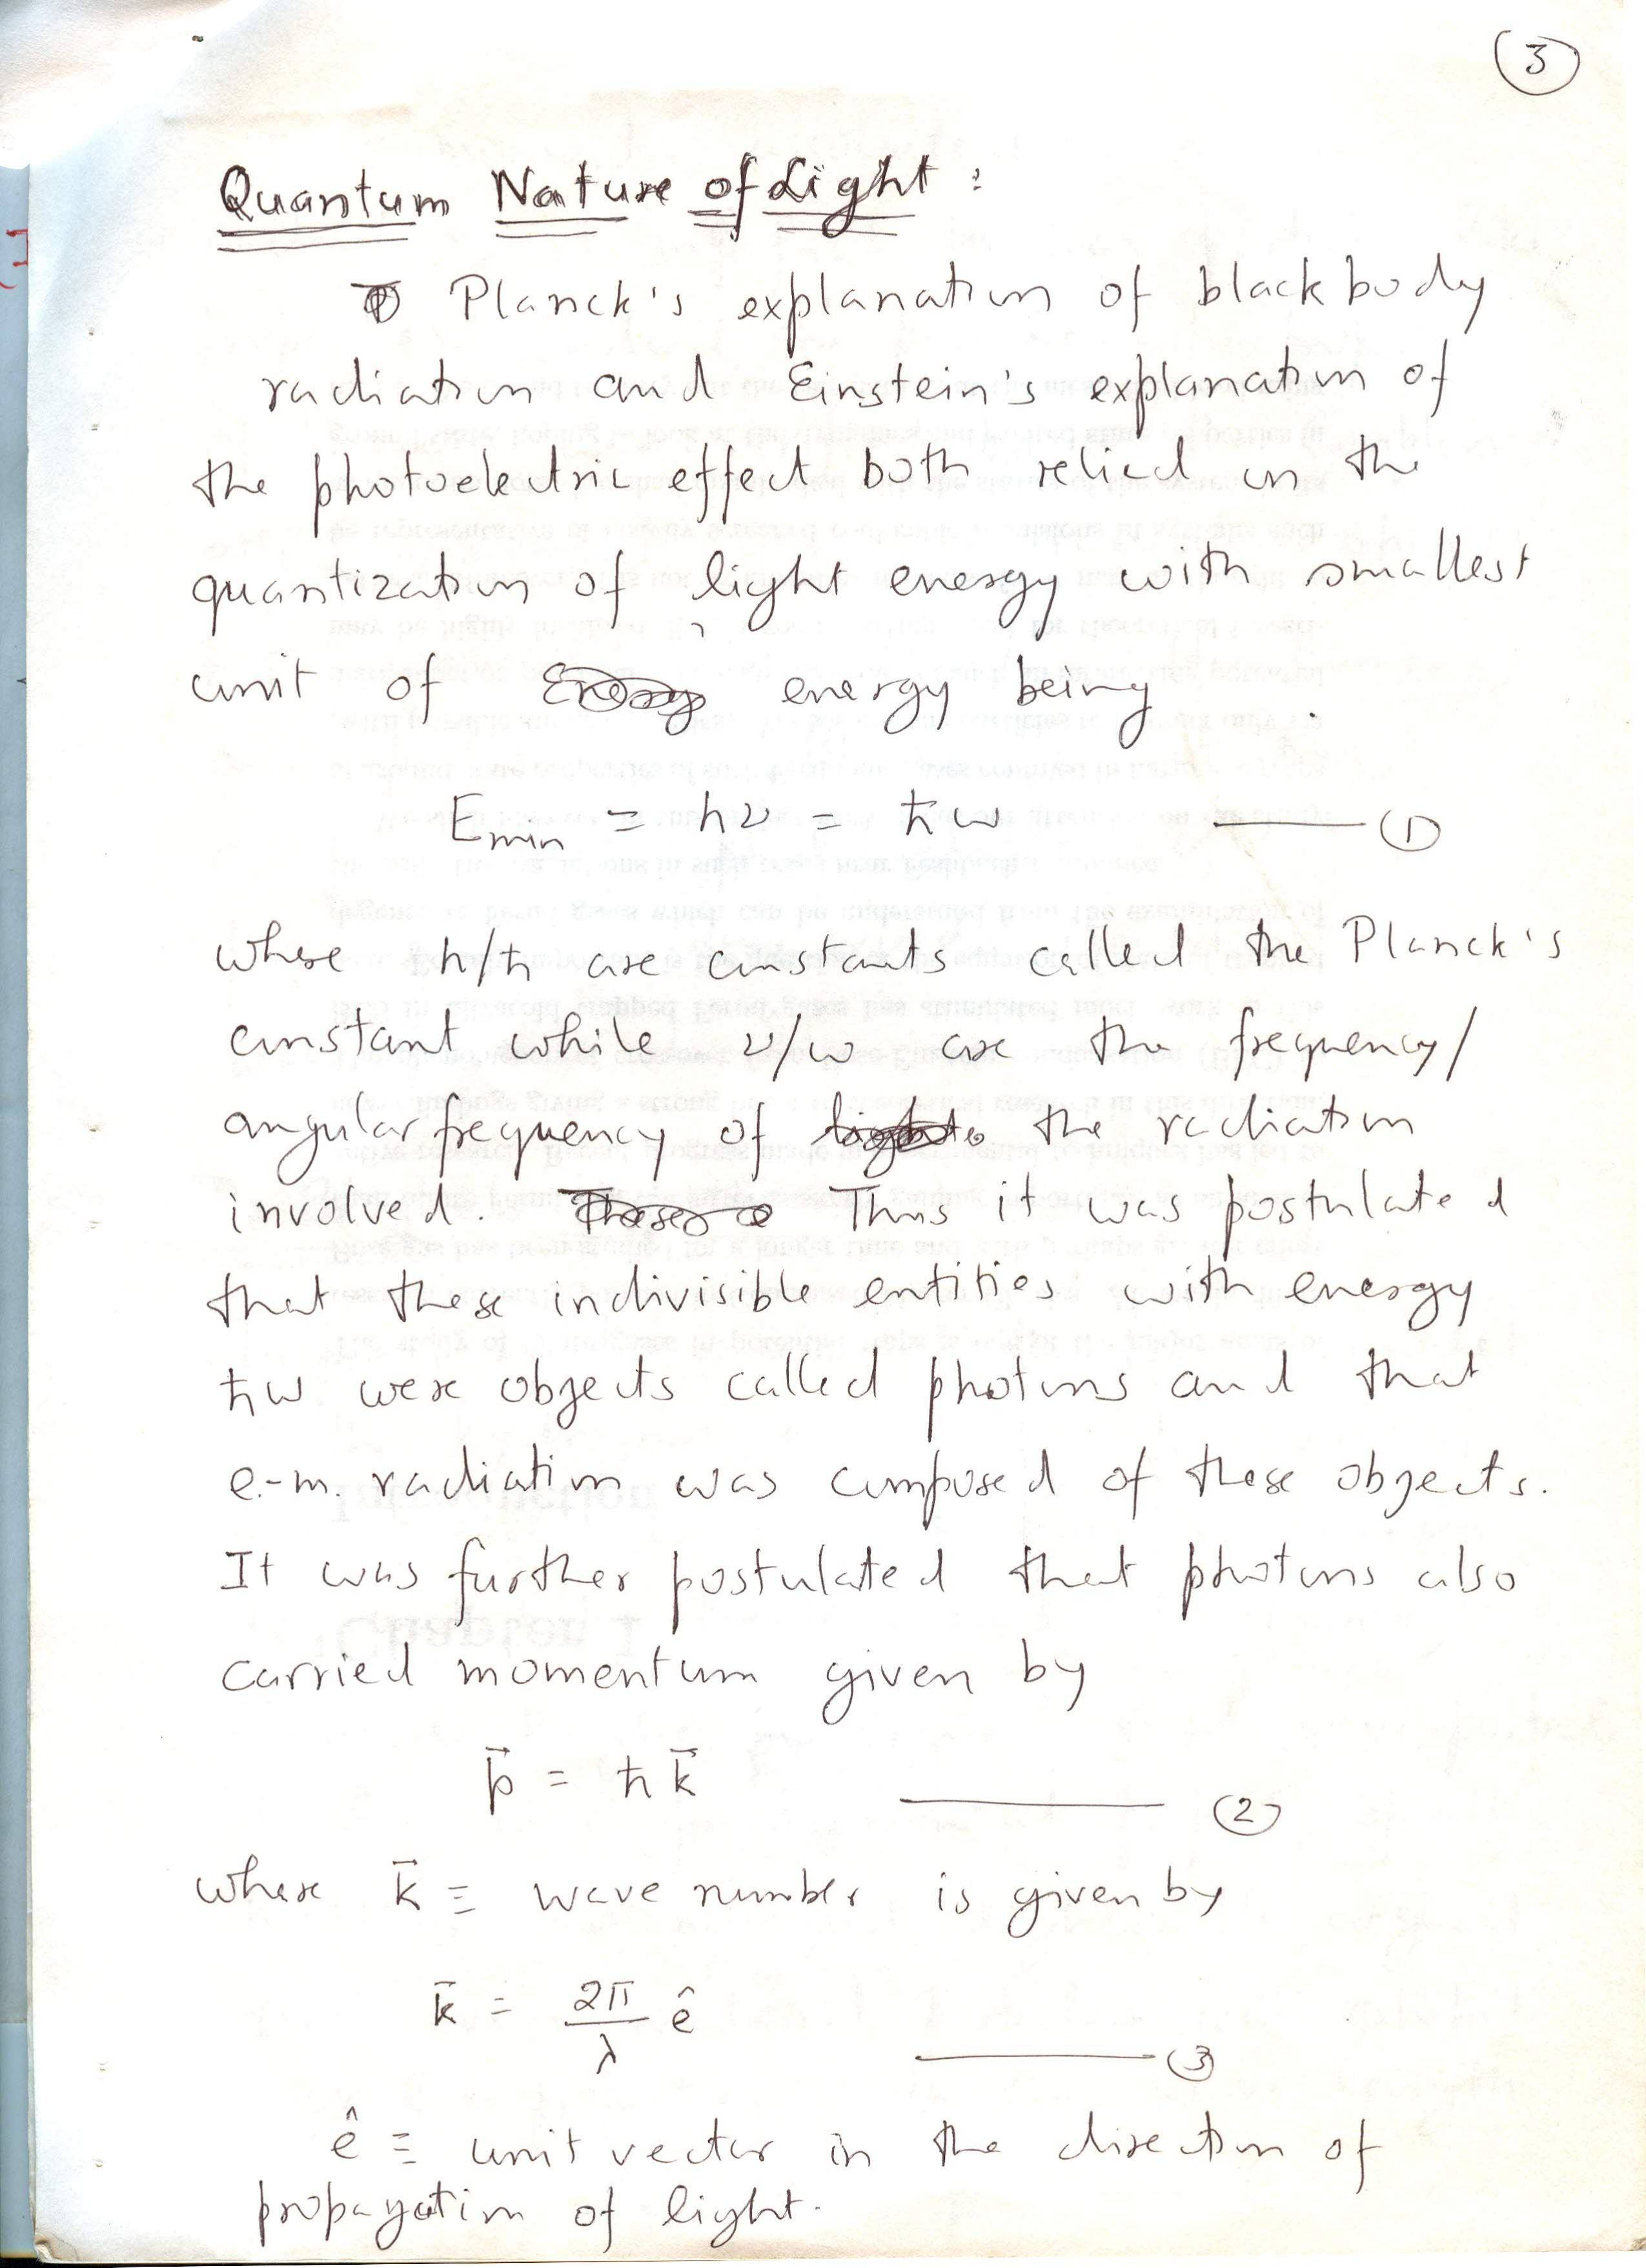 3
Quantum Nature of Light :
Planck's explanation of blackbody
radiation and Einstein's explanation of
the photoelectric effect both relied on the
quantization of light energy with smallest
unit of energy being
E_min = hν = ħω ——— (1)
where h/ħ are constants called the Planck's
constant while ν/ω are the frequency/
angular frequency of the radiation
involved. Thus it was postulated
that these indivisible entities with energy
ħω were objects called photons and that
e.-m. radiation was composed of these objects.
It was further postulated that photons also
carried momentum given by
p⃗ = ħ k⃗ ——— (2)
where k⃗ ≡ wave number is given by
k⃗ = 2π/λ ê ——— (3)
ê ≡ unit vector in the direction of
propagation of light.